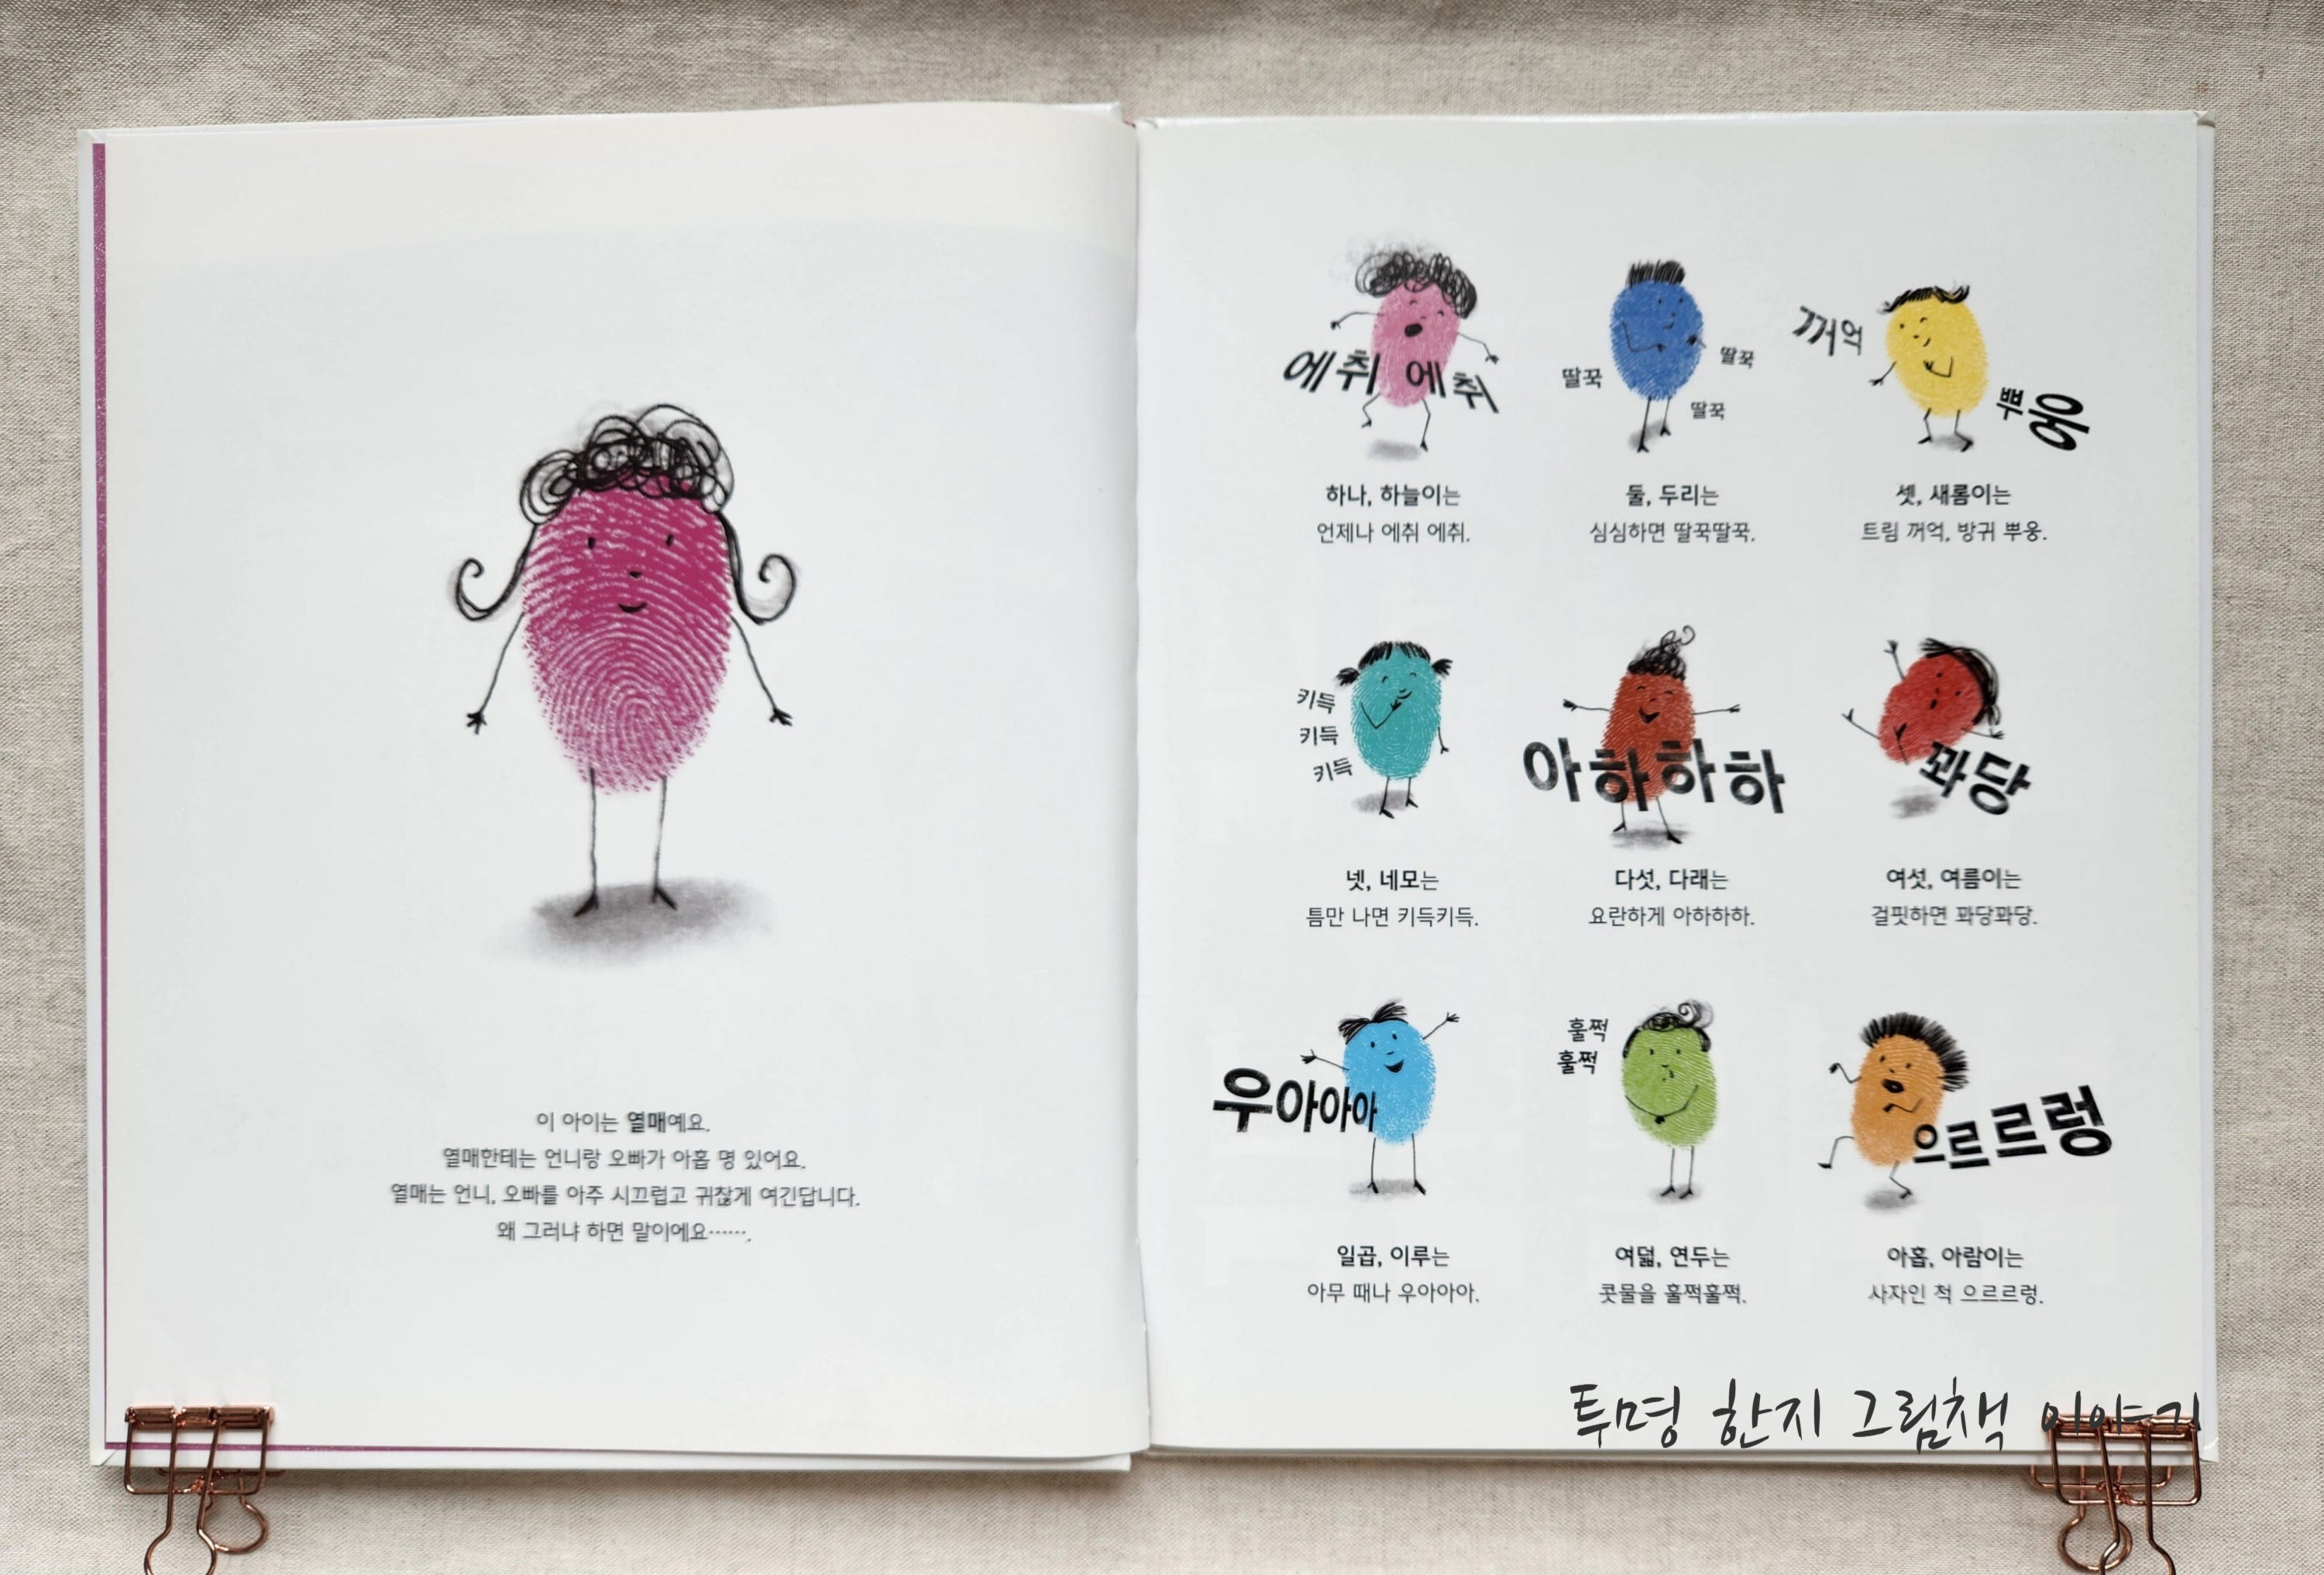 이 아이는 열매예요.
열매한테는 언니랑 오빠가 아홉 명 있어요.
열매는 언니, 오빠를 아주 시끄럽고 귀찮게 여긴답니다.
왜 그러냐 하면 말이에요…….
에취 에취
하나, 하늘이는
언제나 에취 에취.
딸꾹
딸꾹
딸꾹
둘, 두리는
심심하면 딸꾹딸꾹.
꺼억
뿌웅
셋, 새롬이는
트림 꺼억, 방귀 뿌웅.
키득
키득
키득
넷, 네모는
틈만 나면 키득키득.
아하하하
다섯, 다래는
요란하게 아하하하.
꽈당
여섯, 여름이는
걸핏하면 꽈당꽈당.
우아아아
일곱, 이루는
아무 때나 우아아아.
훌쩍
훌쩍
여덟, 연두는
콧물을 훌쩍훌쩍.
으르르렁
아홉, 아람이는
사자인 척 으르르렁.
투명 한지 그림책 이야기